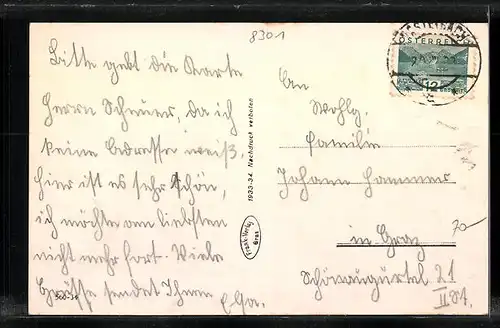 8301
Bitte gebt die Karte
Herrn Scheuer, da ich
keine Adresse weiß.
Hier ist es sehr schön,
ich möchte am liebsten
nicht mehr fort. Viele
Grüsse sendet Ihnen
1933-34 Nachdruck verboten
Frank-Verlag
Graz
ÖSTERREICH
An
Wohlg.
Familie
Johann Hammer
in Graz
Schönaugürtel 21
II St.
70